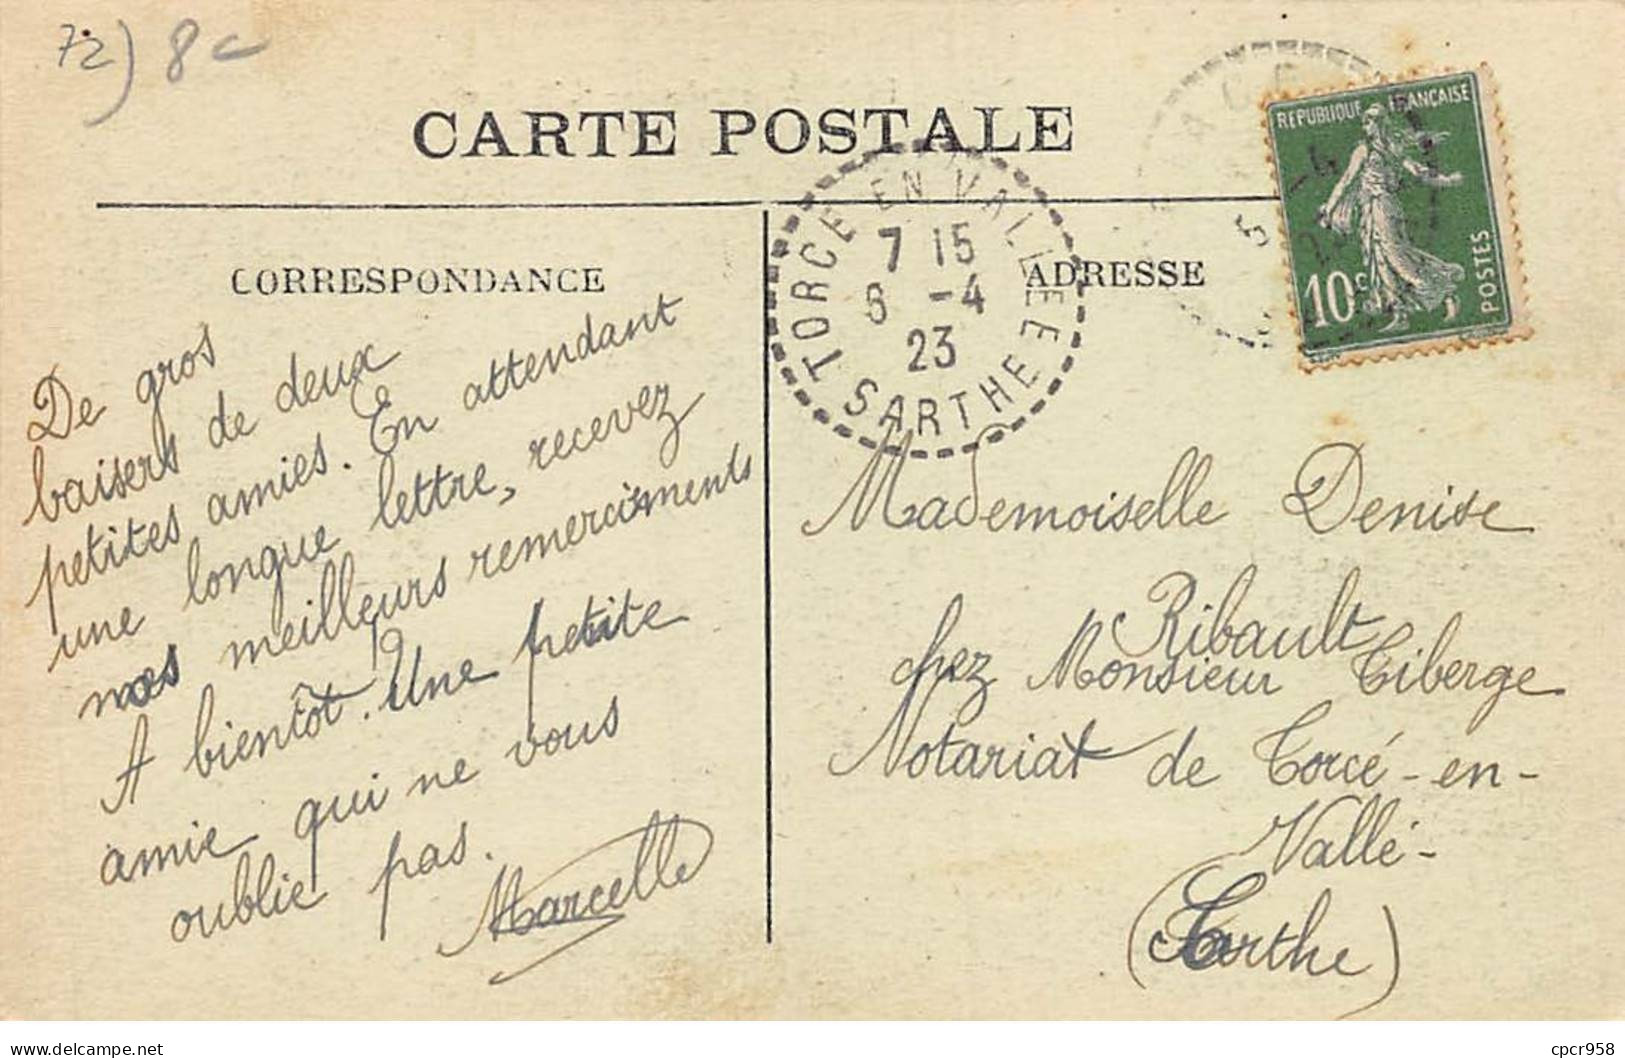 72) 8c
CARTE POSTALE
REPUBLIQUE FRANÇAISE
10c
POSTES
TORCE EN VALLEE
7 15
6 -4
23
SARTHE
CORRESPONDANCE
De gros
baisers de deux
petites amies. En attendant
une longue lettre, recevez
nos meilleurs remerciments
A bientôt. Une petite
amie qui ne vous
oublie pas.
Marcelle
ADRESSE
Mademoiselle Denise
Ribault
chez Monsieur Tiberge
Notariat de Torcé-en-
Vallé-
(Sarthe)
delcampe.net
cpcr958